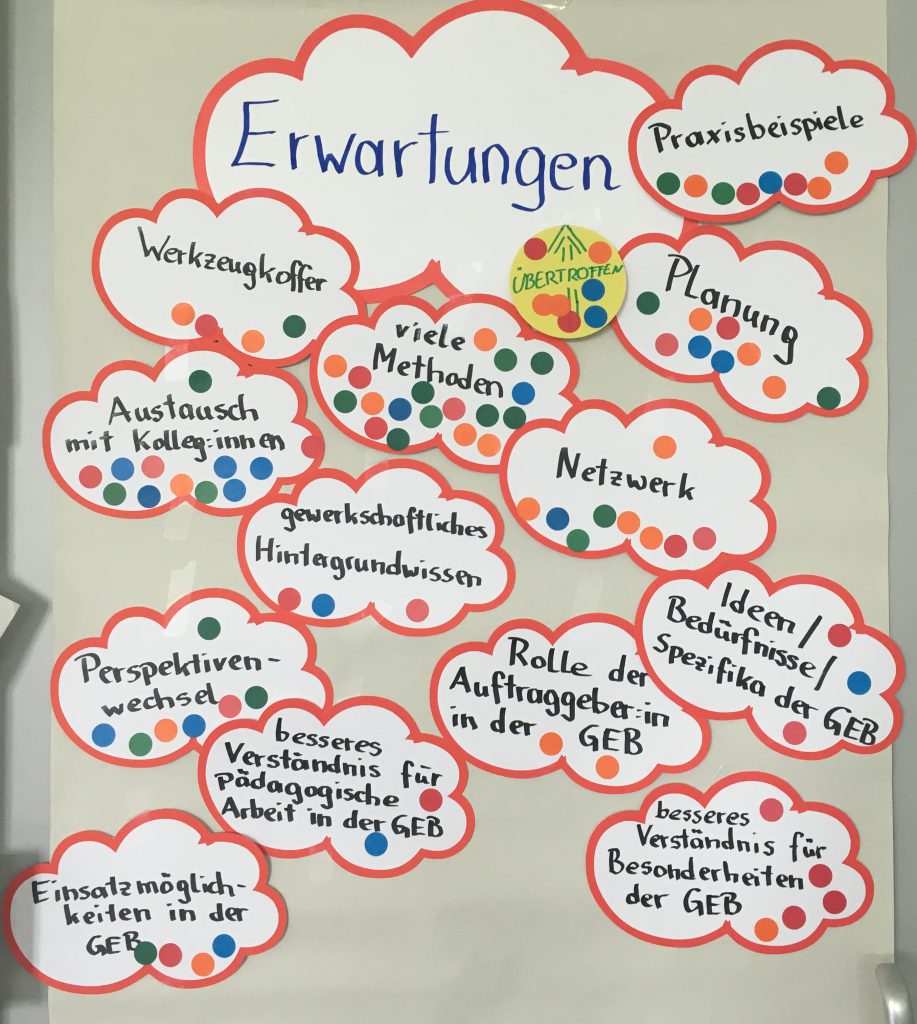 Erwartungen
Praxisbeispiele
Werkzeugkoffer
ÜBERTROFFEN
PLanung
viele
Methoden
Austausch
mit Kolleg:innen
Netzwerk
gewerkschaftliches
Hintergrundwissen
Ideen/
Bedürfnisse/
Spezifika der GEB
Perspektiven-
wechsel
Rolle der
Auftraggeber:in
in der GEB
besseres
Verständnis für
Pädagogische
Arbeit in der GEB
besseres
Verständnis für
Besonderheiten
der GEB
Einsatzmöglich-
keiten in der
GEB